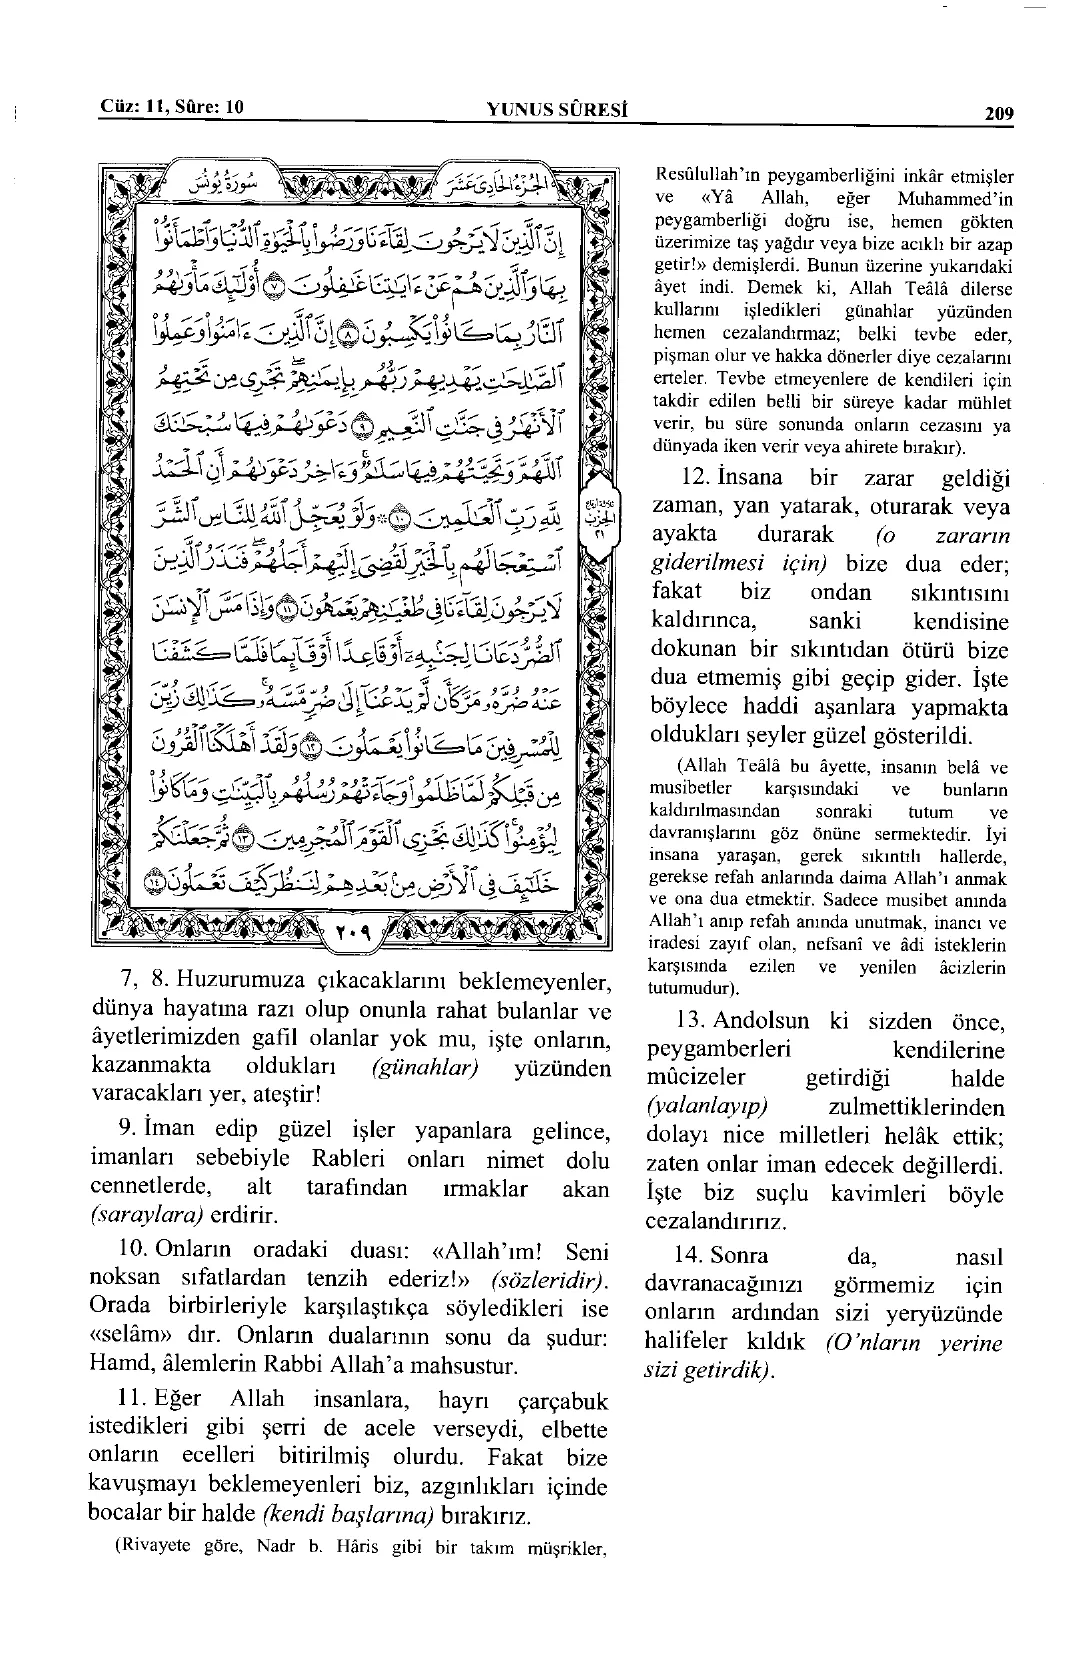 Cüz: 11, Sûre: 10
YUNUS SÛRESİ
209
سورة يونس
الجزء الحادي عشر
إِنَّ ٱلَّذِينَ لَا يَرْجُونَ لِقَآءَنَا وَرَضُوا۟ بِٱلْحَيَوٰةِ ٱلدُّنْيَا وَٱطْمَأَنُّوا۟
بِهَا وَٱلَّذِينَ هُمْ عَنْ ءَايَـٰتِنَا غَـٰفِلُونَ ٧ أُو۟لَـٰٓئِكَ مَأْوَىٰهُمُ
ٱلنَّارُ بِمَا كَانُوا۟ يَكْسِبُونَ ٨ إِنَّ ٱلَّذِينَ ءَامَنُوا۟ وَعَمِلُوا۟
ٱلصَّـٰلِحَـٰتِ يَهْدِيهِمْ رَبُّهُم بِإِيمَـٰنِهِمْ ۖ تَجْرِى مِن تَحْتِهِمُ
ٱلْأَنْهَـٰرُ فِى جَنَّـٰتِ ٱلنَّعِيمِ ٩ دَعْوَىٰهُمْ فِيهَا سُبْحَـٰنَكَ
ٱللَّهُمَّ وَتَحِيَّتُهُمْ فِيهَا سَلَـٰمٌ ۚ وَءَاخِرُ دَعْوَىٰهُمْ أَنِ ٱلْحَمْدُ
لِلَّهِ رَبِّ ٱلْعَـٰلَمِينَ ١٠ ۞ وَلَوْ يُعَجِّلُ ٱللَّهُ لِلنَّاسِ ٱلشَّرَّ
ٱسْتِعْجَالَهُم بِٱلْخَيْرِ لَقُضِىَ إِلَيْهِمْ أَجَلُهُمْ ۖ فَنَذَرُ ٱلَّذِينَ
لَا يَرْجُونَ لِقَآءَنَا فِى طُغْيَـٰنِهِمْ يَعْمَهُونَ ١١ وَإِذَا مَسَّ ٱلْإِنسَـٰنَ
ٱلضُّرُّ دَعَانَا لِجَنۢبِهِۦٓ أَوْ قَاعِدًا أَوْ قَآئِمًا فَلَمَّا كَشَفْنَا
عَنْهُ ضُرَّهُۥ مَرَّ كَأَن لَّمْ يَدْعُنَآ إِلَىٰ ضُرٍّ مَّسَّهُۥ ۚ كَذَٰلِكَ زُيِّنَ
لِلْمُسْرِفِينَ مَا كَانُوا۟ يَعْمَلُونَ ١٢ وَلَقَدْ أَهْلَكْنَا ٱلْقُرُونَ
مِن قَبْلِكُمْ لَمَّا ظَلَمُوا۟ ۙ وَجَآءَتْهُمْ رُسُلُهُم بِٱلْبَيِّنَـٰتِ وَمَا كَانُوا۟
لِيُؤْمِنُوا۟ ۚ كَذَٰلِكَ نَجْزِى ٱلْقَوْمَ ٱلْمُجْرِمِينَ ١٣ ثُمَّ جَعَلْنَـٰكُمْ
خَلَـٰٓئِفَ فِى ٱلْأَرْضِ مِنۢ بَعْدِهِمْ لِنَنظُرَ كَيْفَ تَعْمَلُونَ ١٤
٢٠٩
الحزب
٢١
7, 8. Huzurumuza çıkacaklarını beklemeyenler,
dünya hayatına razı olup onunla rahat bulanlar ve
âyetlerimizden gafil olanlar yok mu, işte onların,
kazanmakta oldukları (günahlar) yüzünden
varacakları yer, ateştir!
9. İman edip güzel işler yapanlara gelince,
imanları sebebiyle Rableri onları nimet dolu
cennetlerde, alt tarafından ırmaklar akan
(saraylara) erdirir.
10. Onların oradaki duası: «Allah'ım! Seni
noksan sıfatlardan tenzih ederiz!» (sözleridir).
Orada birbirleriyle karşılaştıkça söyledikleri ise
«selâm» dır. Onların dualarının sonu da şudur:
Hamd, âlemlerin Rabbi Allah'a mahsustur.
11. Eğer Allah insanlara, hayrı çarçabuk
istedikleri gibi şerri de acele verseydi, elbette
onların ecelleri bitirilmiş olurdu. Fakat bize
kavuşmayı beklemeyenleri biz, azgınlıkları içinde
bocalar bir halde (kendi başlarına) bırakırız.
(Rivayete göre, Nadr b. Hâris gibi bir takım müşrikler,
Resûlullah'ın peygamberliğini inkâr etmişler
ve «Yâ Allah, eğer Muhammed'in
peygamberliği doğru ise, hemen gökten
üzerimize taş yağdır veya bize acıklı bir azap
getir!» demişlerdi. Bunun üzerine yukarıdaki
âyet indi. Demek ki, Allah Teâlâ dilerse
kullarını işledikleri günahlar yüzünden
hemen cezalandırmaz; belki tevbe eder,
pişman olur ve hakka dönerler diye cezalarını
erteler. Tevbe etmeyenlere de kendileri için
takdir edilen belli bir süreye kadar mühlet
verir, bu süre sonunda onların cezasını ya
dünyada iken verir veya ahirete bırakır).
12. İnsana bir zarar geldiği
zaman, yan yatarak, oturarak veya
ayakta durarak (o zararın
giderilmesi için) bize dua eder;
fakat biz ondan sıkıntısını
kaldırınca, sanki kendisine
dokunan bir sıkıntıdan ötürü bize
dua etmemiş gibi geçip gider. İşte
böylece haddi aşanlara yapmakta
oldukları şeyler güzel gösterildi.
(Allah Teâlâ bu âyette, insanın belâ ve
musibetler karşısındaki ve bunların
kaldırılmasından sonraki tutum ve
davranışlarını göz önüne sermektedir. İyi
insana yaraşan, gerek sıkıntılı hallerde,
gerekse refah anlarında daima Allah'ı anmak
ve ona dua etmektir. Sadece musibet anında
Allah'ı anıp refah anında unutmak, inancı ve
iradesi zayıf olan, nefsanî ve âdi isteklerin
karşısında ezilen ve yenilen âcizlerin
tutumudur).
13. Andolsun ki sizden önce,
peygamberleri kendilerine
mûcizeler getirdiği halde
(yalanlayıp) zulmettiklerinden
dolayı nice milletleri helâk ettik;
zaten onlar iman edecek değillerdi.
İşte biz suçlu kavimleri böyle
cezalandırırız.
14. Sonra da, nasıl
davranacağınızı görmemiz için
onların ardından sizi yeryüzünde
halifeler kıldık (O'nların yerine
sizi getirdik).